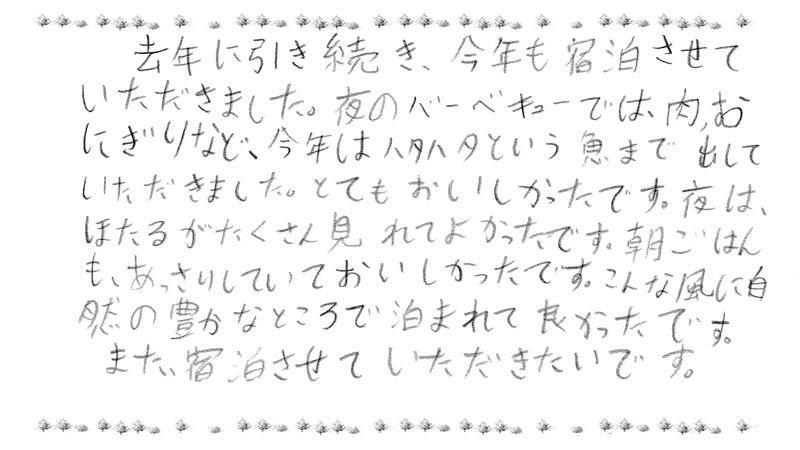 去年に引き続き、今年も宿泊させて
いただきました。夜のバーベキューでは、肉、お
にぎりなど、今年はハタハタという魚まで出して
いただきました。とてもおいしかったです。夜は、
ほたるがたくさん見れてよかったです。朝ごはん
も、あっさりしていておいしかったです。こんな風に自
然の豊かなところで泊まれて良かったです。
また、宿泊させていただきたいです。